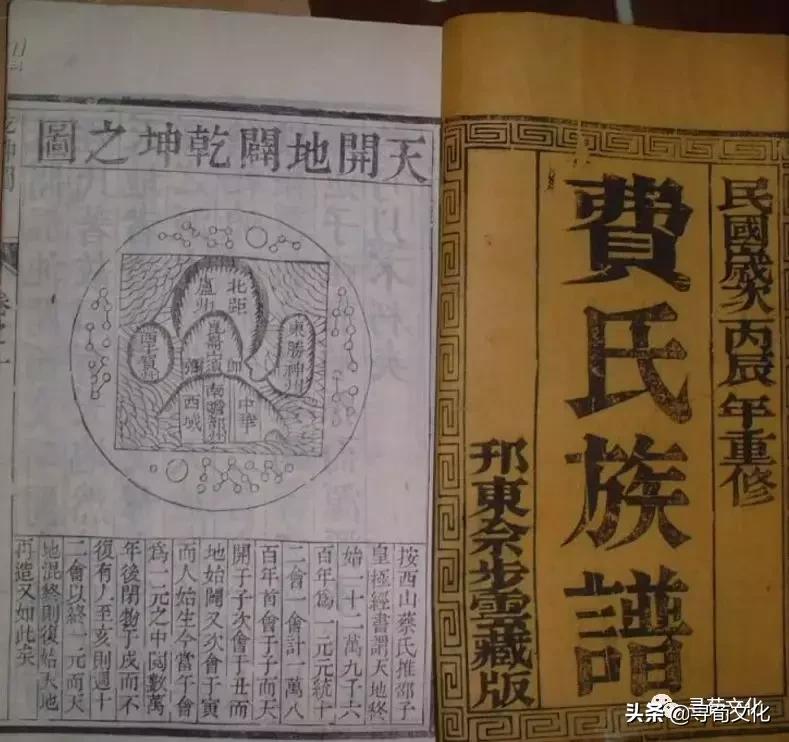 民國五歲次丙辰年重修
費氏族譜
邦東余步雲藏版
天開地闢乾坤之圖
北距
盧州
東勝神州
崑崙山
中華
南瞻部州
西域
按西山蔡氏推邵子
皇極經書謂天地終
始一十二萬九千六
百年為一元元統十
二會一會計一萬八
百年首會于子而天
開子子次會于丑而
地始闢又次會于寅
而人始生今當午會
為一元之中閱數萬
年後閉物于戌而不
復有人至亥則週十
二會以終一元而天
地混終則復始天地
再造又如此矣
寻荀文化
头条 @寻荀文化